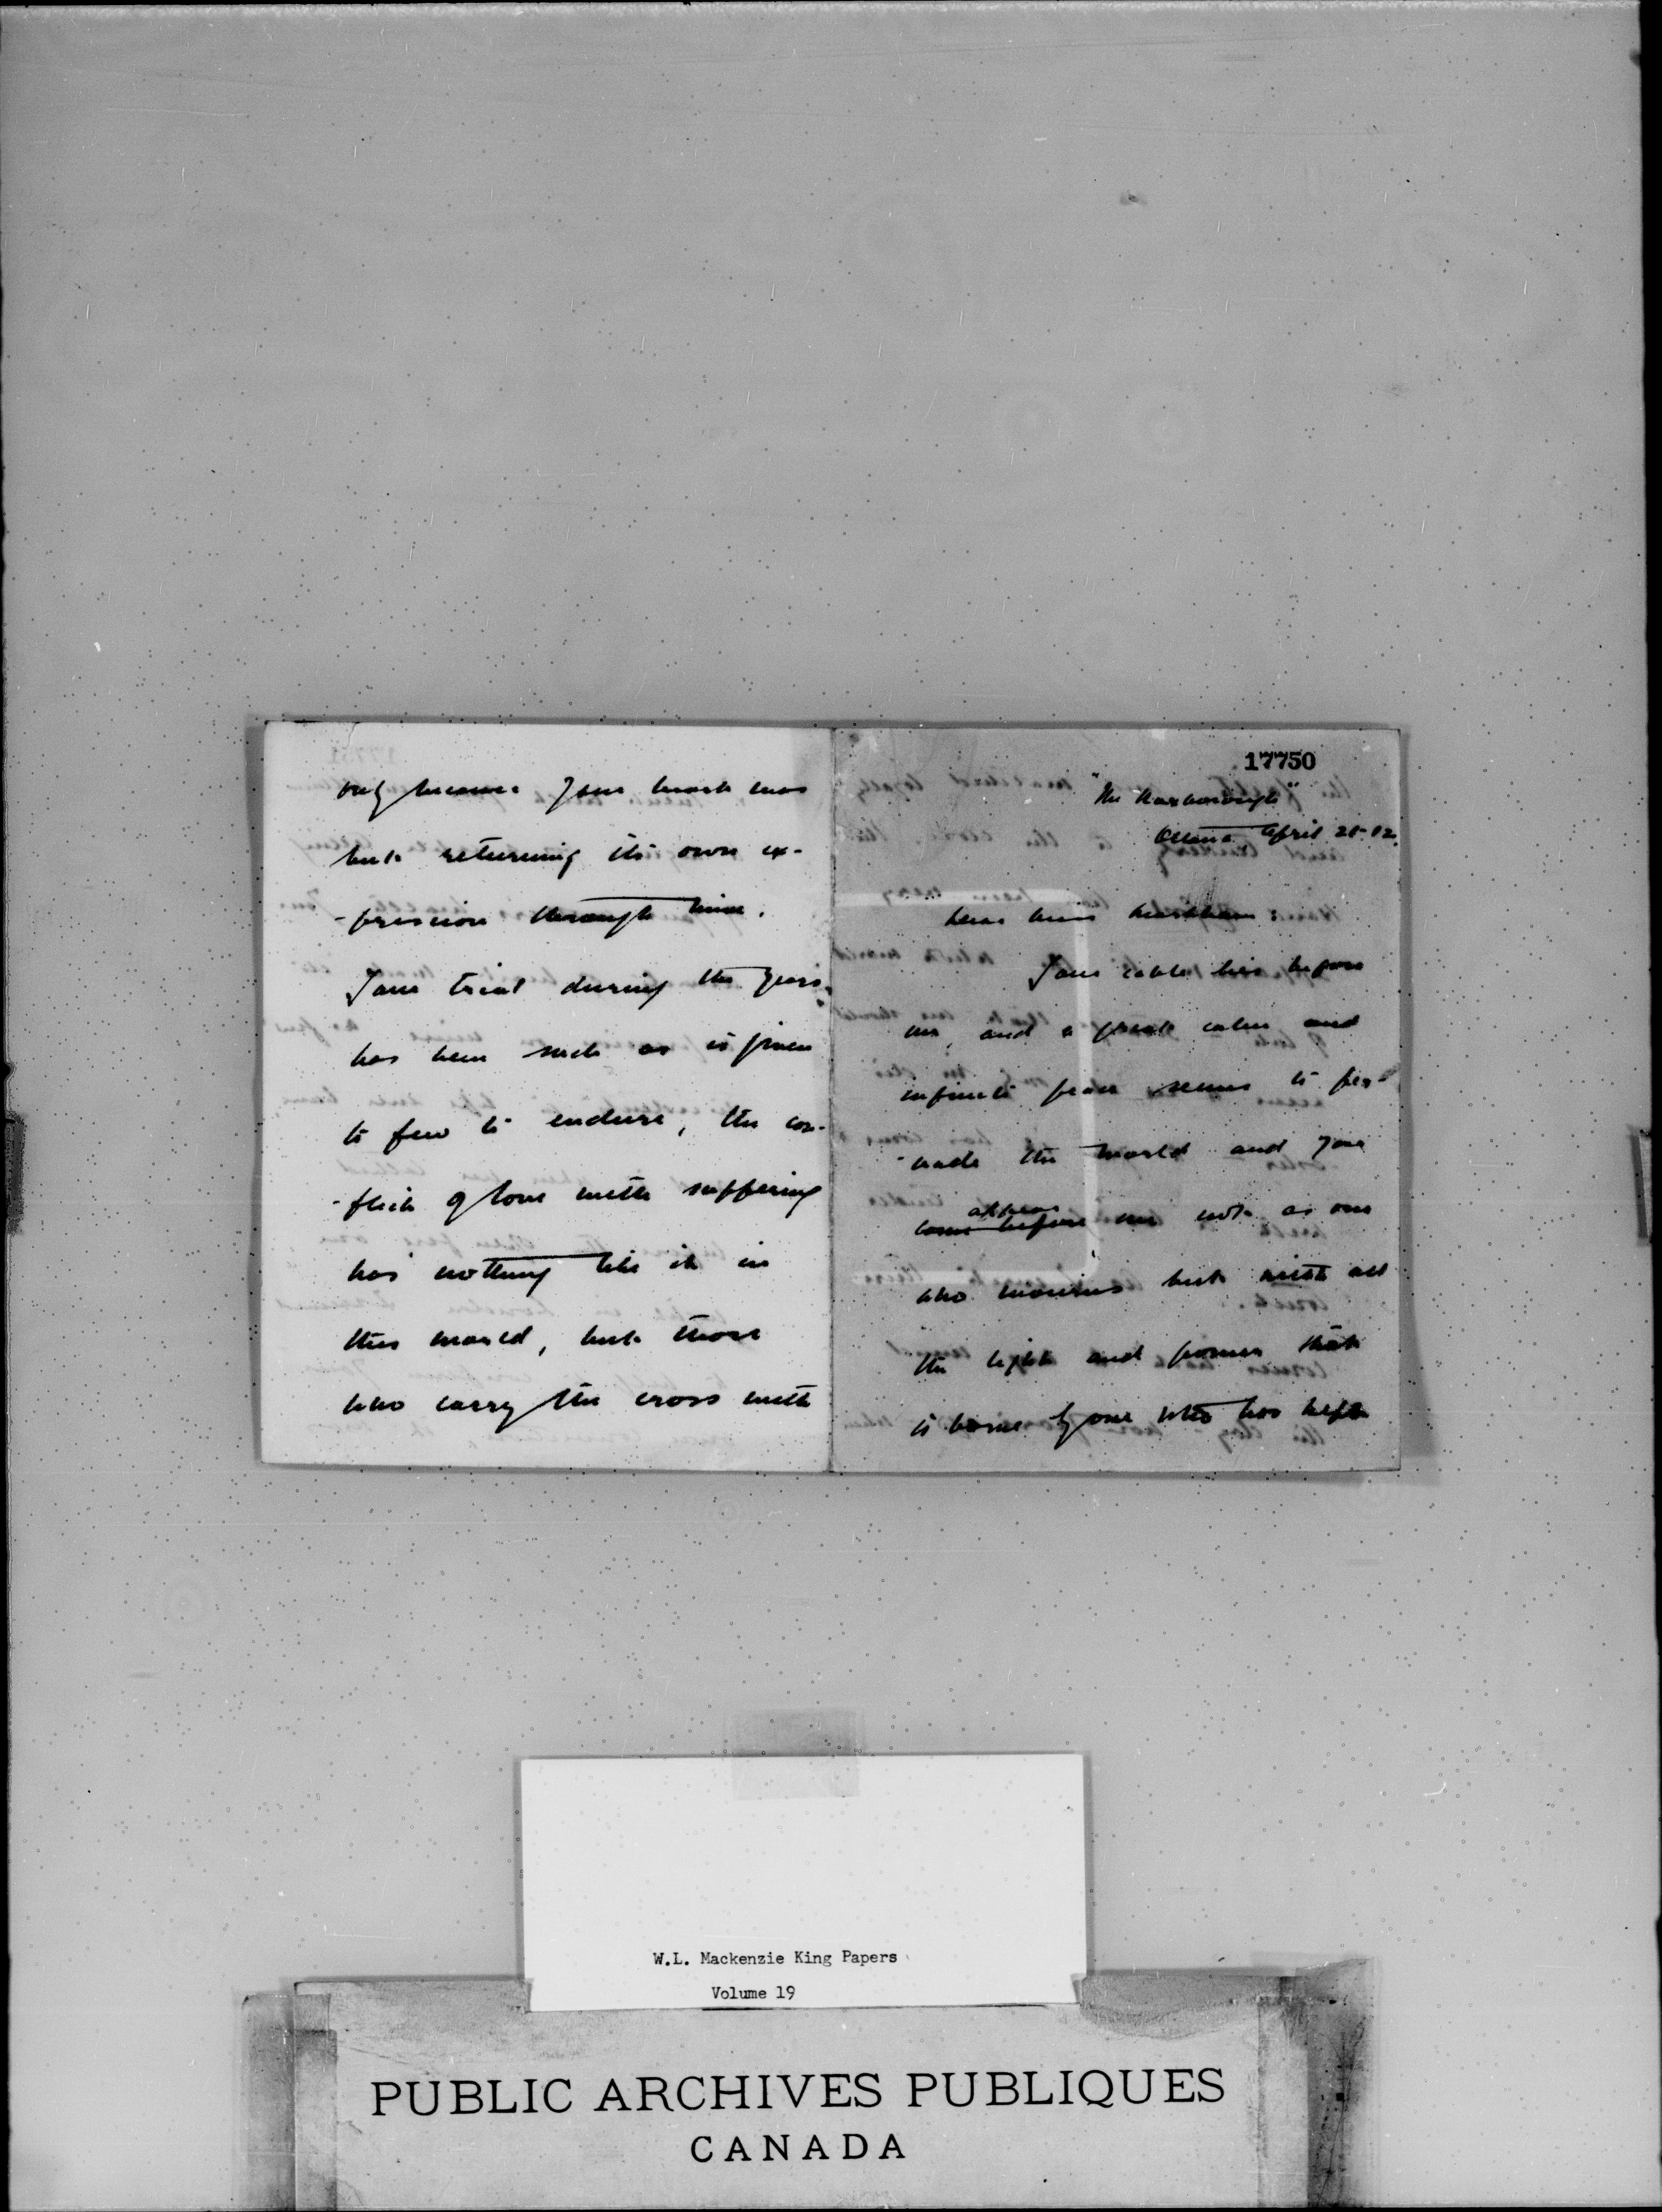 only because your heart was
but returning its own ex-
-pression through mine.
Your trial during the years
has been such as is given
to few to endure, the con-
-flict of love with suffering
has nothing like it in
this world, but those
who carry the cross with
17750
"The Roxborough"
Ottawa April 21-12.
Dear Miss Markham:
Your cable lies before
me, and a great calm and
infinite peace seems to per-
-vade the world and you
appear
come before me not as one
who mourns but with all
the light and power that
is borne by one who has kept
W.L. Mackenzie King Papers
Volume 19
PUBLIC ARCHIVES PUBLIQUES
CANADA